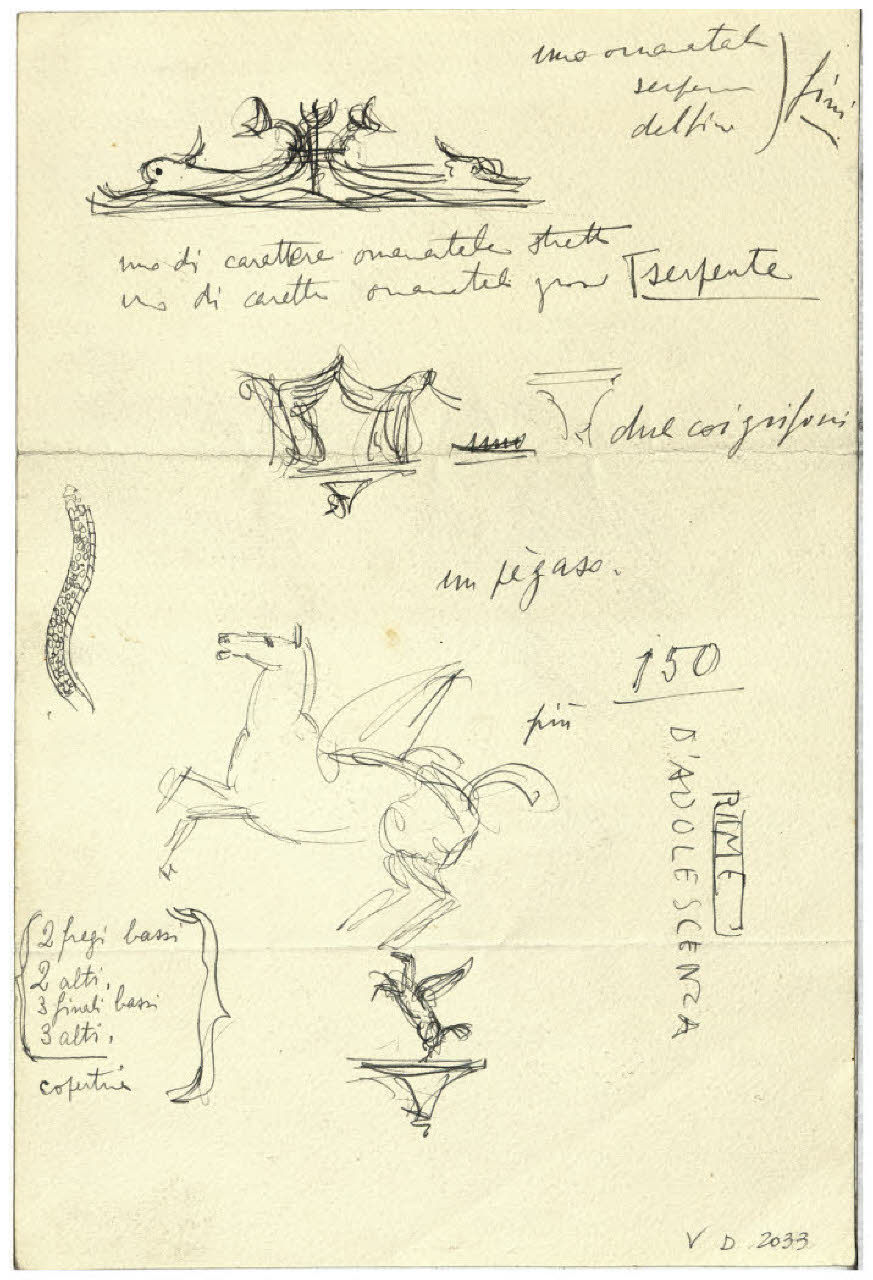 uno ornamentale
serpen
delfin
fini
uno di carattere ornamentale stretto
uno di caratte ornamentale grosso serpente
uno
due coi grifoni
un pègaso.
150
più
RIME
D'ADOLESCENZA
2 fregi bassi
2 alti,
3 finali bassi
3 alti,
copertina
V D 2033